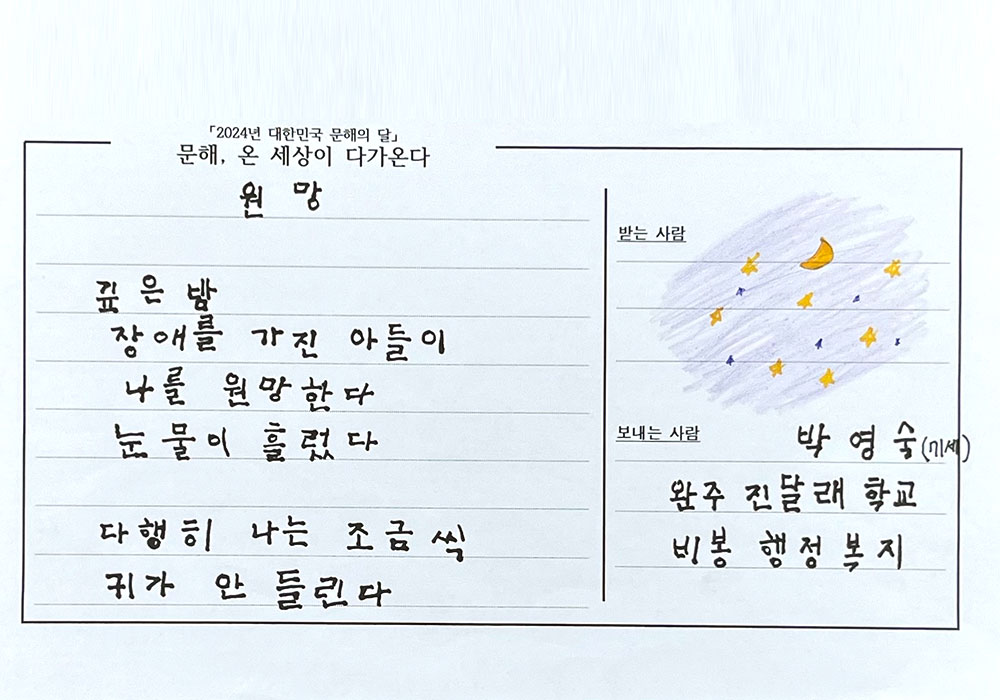 「2024년 대한민국 문해의 달」
문해, 온 세상이 다가온다
원망
깊은 밤
장애를 가진 아들이
나를 원망한다
눈물이 흘렀다
다행히 나는 조금씩
귀가 안 들린다
받는 사람
보내는 사람
박영숙(71세)
완주 진달래 학교
비봉 행정복지